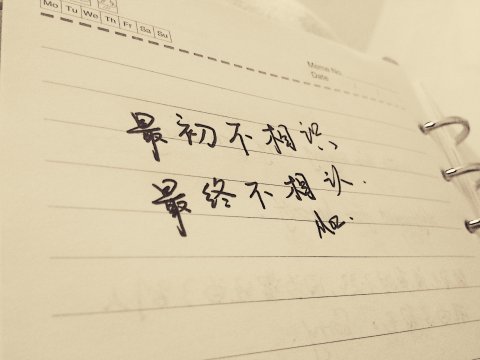 Mo Tu We Th Fr Sa Su
Memo No.
Date
最初不相识、
最终不相认.